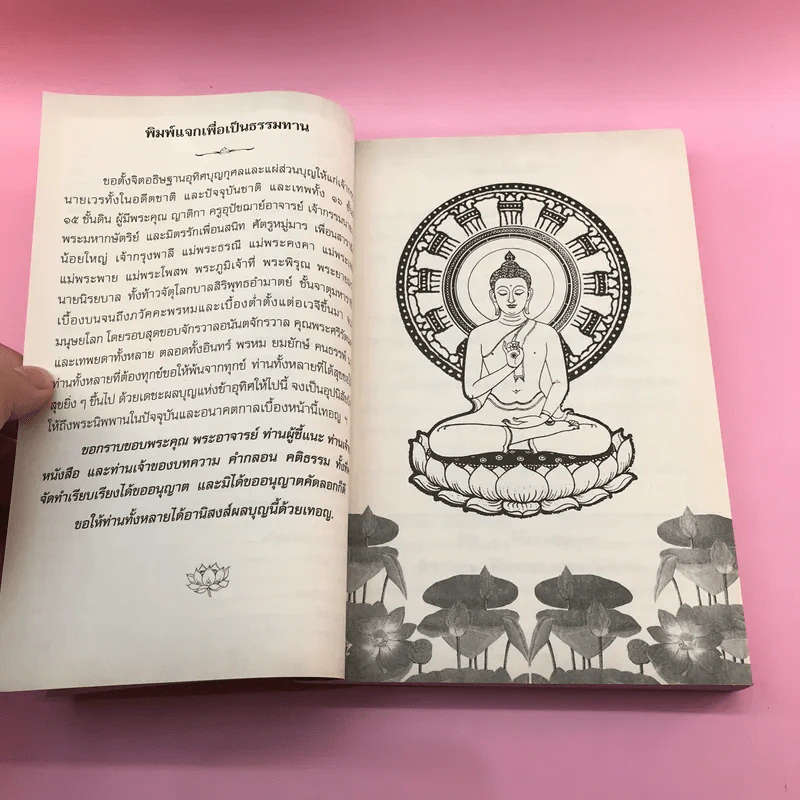 พิมพ์แจกเพื่อเป็นธรรมทาน
ขอตั้งจิตอธิษฐานอุทิศบุญกุศลและแผ่ส่วนบุญให้แก่เจ้า
นายเวรทั้งในอดีตชาติ และปัจจุบันชาติ และเทพทั้ง ๑๖
๑๕ ชั้นดิน ผู้มีพระคุณ ญาติกา ครูอุปัชฌาย์อาจารย์ เจ้ากรรม
พระมหากษัตริย์ และมิตรรักเพื่อนสนิท ศัตรูหมู่มาร เพื่อน
น้อยใหญ่ เจ้ากรุงพาลี แม่พระธรณี แม่พระคงคา
แม่พระพาย แม่พระโพสพ พระภูมิเจ้าที่ พระพิรุณ
นายนิรยบาล ทั้งท้าวจัตุโลกบาลสิริพุทธอำมาตย์ ชั้นจาตุมหา
เบื้องบนจนถึงภวัคคะพรหมและเบื้องต่ำตั้งแต่อเวจีขึ้นมา
มนุษย์โลก โดยรอบสุดขอบจักรวาลอนันตจักรวาล คุณพระศรี
และเทพยดาทั้งหลาย ตลอดทั้งอินทร์ พรหม ยมยักษ์ คนธรรพ์
ท่านทั้งหลายที่ต้องทุกข์ขอให้พ้นจากทุกข์ ท่านทั้งหลายที่ได้สุข
สุขยิ่ง ๆ ขึ้นไป ด้วยเดชะผลบุญแห่งข้าอุทิศให้ไปนี้ จงเป็น
ให้ถึงพระนิพพานในปัจจุบันและอนาคตกาลเบื้องหน้านี้เทอญ ฯ
ขอกราบขอบพระคุณ พระอาจารย์ ท่านผู้ชี้แนะ
หนังสือ และท่านเจ้าของบทความ คำกลอน คติธรรม
จัดทำเรียบเรียงได้ขออนุญาต และมิได้ขออนุญาตคัดลอกก็ดี
ขอให้ท่านทั้งหลายได้อานิสงส์ผลบุญนี้ด้วยเทอญ.